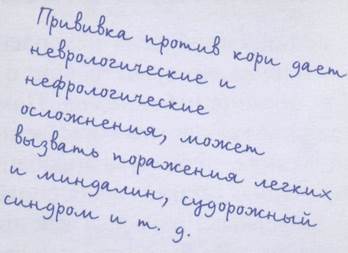 Прививка против кори дает
неврологические и
нефрологические
осложнения, может
вызвать поражения легких
и миндалин, судорожный
синдром и т. д.